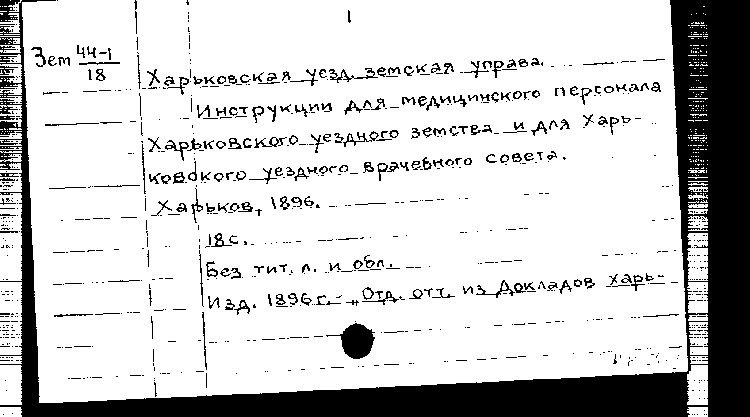 1
Зем 44-1/18
Харьковская уезд. земская управа.
Инструкции для медицинского персонала
Харьковского уездного земства и для Харь-
ковского уездного врачебного совета.
Харьков, 1896.
18 с.
Без тит. л. и обл.
Изд. 1896 г. - „Отд. отт. из Докладов Харь-